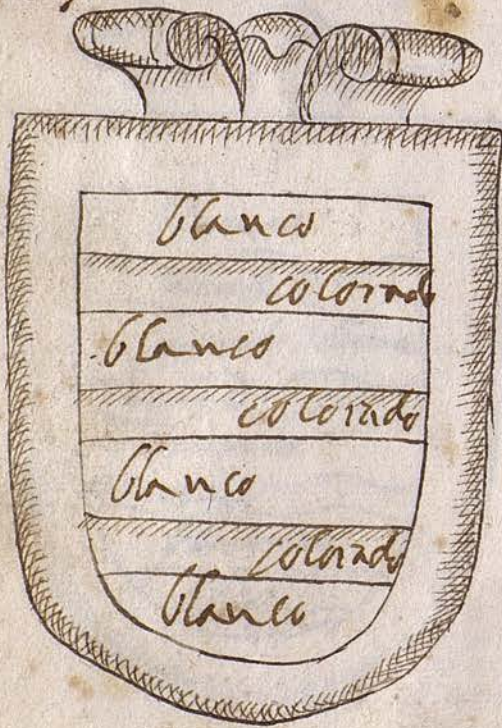 blanco
colorado
blanco
colorado
blanco
colorado
blanco